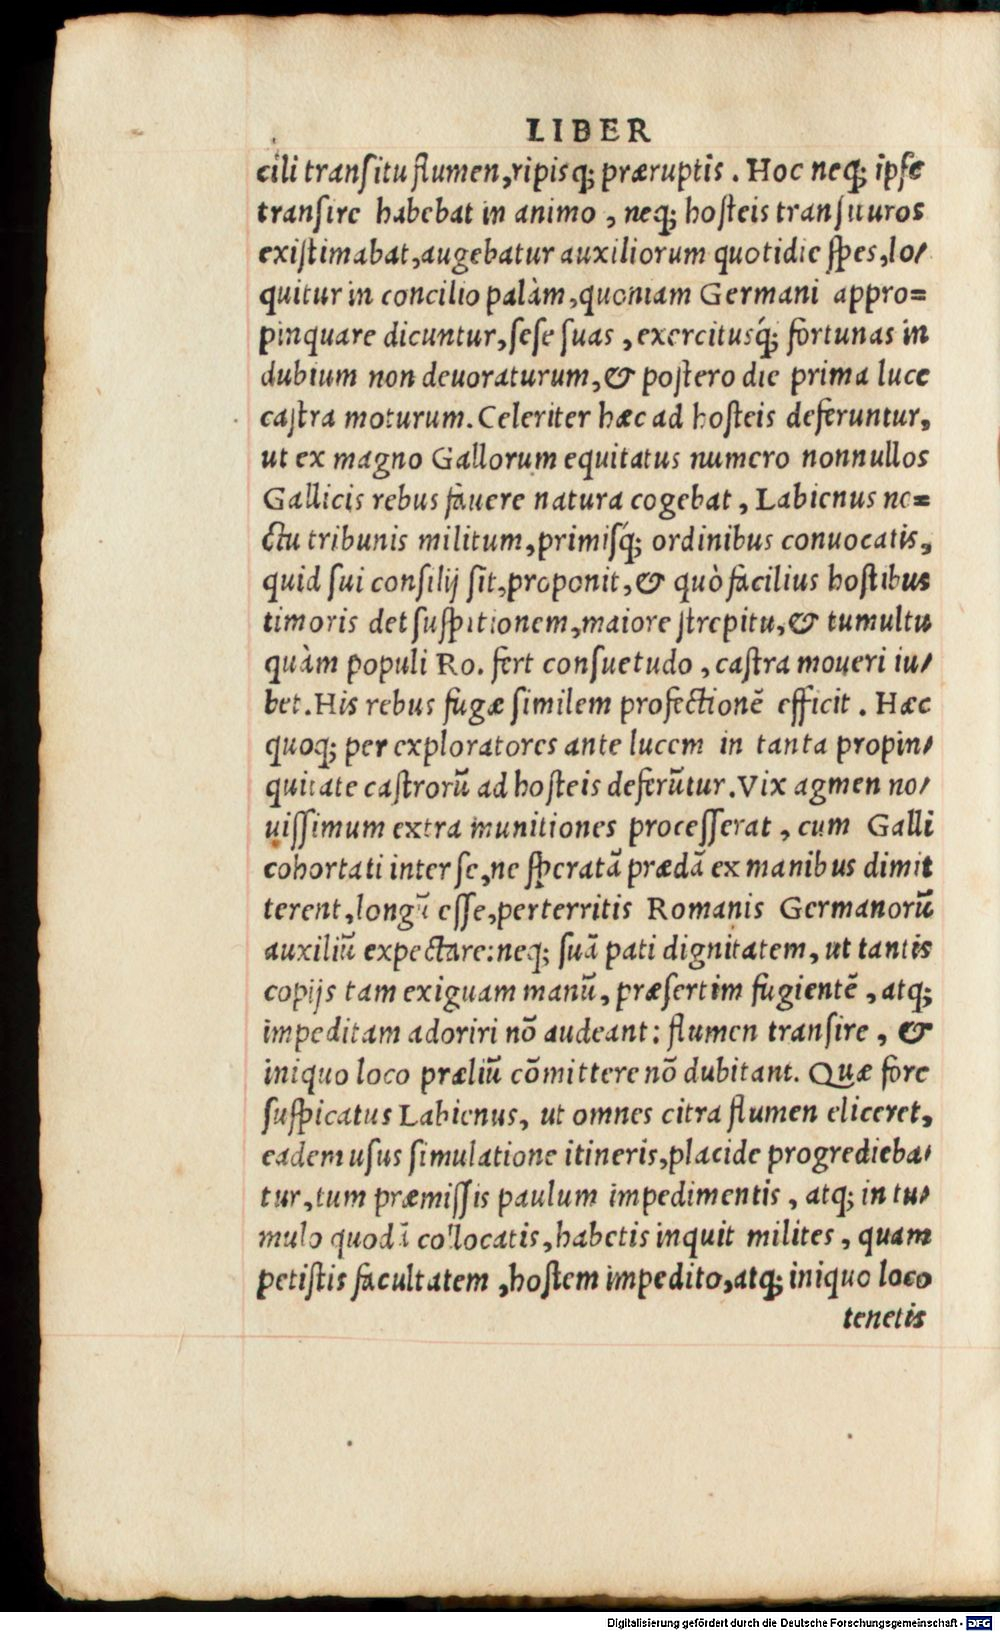 LIBER
cili transitu flumen, ripisq; præruptis. Hoc neq; ipse
transire habebat in animo, neq; hosteis transituros
existimabat, augebatur auxiliorum quotidie spes, lo-
quitur in concilio palàm, quoniam Germani appro=
pinquare dicuntur, sese suas, exercitusq́; fortunas in
dubium non deuoraturum, & postero die prima luce
castra moturum. Celeriter hæc ad hosteis deferuntur,
ut ex magno Gallorum equitatus numero nonnullos
Gallicis rebus fauere natura cogebat, Labienus no=
ctu tribunis militum, primisq́; ordinibus conuocatis,
quid sui consilij sit, proponit, & quò facilius hostibus
timoris det suspitionem, maiore strepitu, & tumultu
quàm populi Ro. fert consuetudo, castra moueri iu-
bet. His rebus fugæ similem profectionē efficit. Hæc
quoq; per exploratores ante lucem in tanta propin-
quitate castrorū ad hosteis deferūtur. Vix agmen no-
uissimum extra munitiones processerat, cum Galli
cohortati inter se, ne speratā prædā ex manibus dimit
terent, longū esse, perterritis Romanis Germanorū
auxiliū expectare: neq; suā pati dignitatem, ut tantis
copijs tam exiguam manū, præsertim fugientē, atq;
impeditam adoriri nō audeant: flumen transire, &
iniquo loco præliū cōmittere nō dubitant. Quæ fore
suspicatus Labienus, ut omnes citra flumen eliceret,
eadem usus simulatione itineris, placide progredieba-
tur, tum præmissis paulum impedimentis, atq; in tu-
mulo quodā collocatis, habetis inquit milites, quam
petistis facultatem, hostem impedito, atq; iniquo loco
tenetis
Digitalisierung gefördert durch die Deutsche Forschungsgemeinschaft - DFG